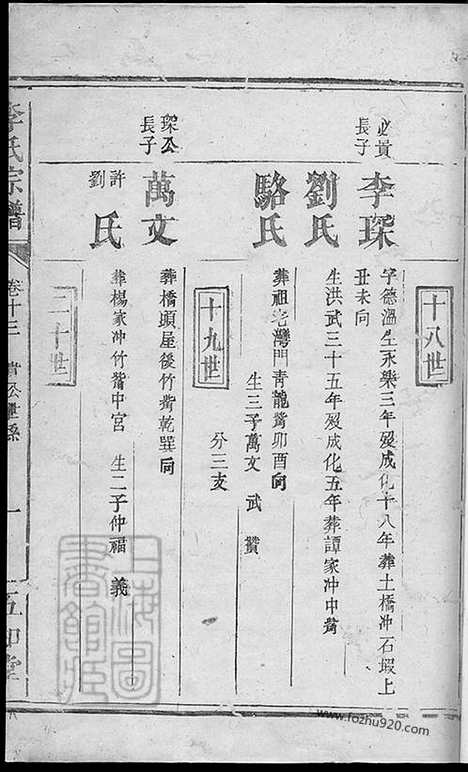 十八世
必貴長子
李琛
字德溫生永樂三年歿成化十八年葬土橋冲石塅上
丑未向
劉氏
生洪武三十五年歿成化五年葬譚家冲中嘴
駱氏
葬祖老灣門青龍嘴卯酉向
生三子萬文 武 贊
分三支
十九世
琛公長子
萬文
葬橋頭屋後竹嘴乾巽向
許劉氏
葬楊家冲竹嘴中宮 生二子仲福 義
二十世
李氏宗譜
卷十三
一
上海圖書館藏
www.fozhu920.com